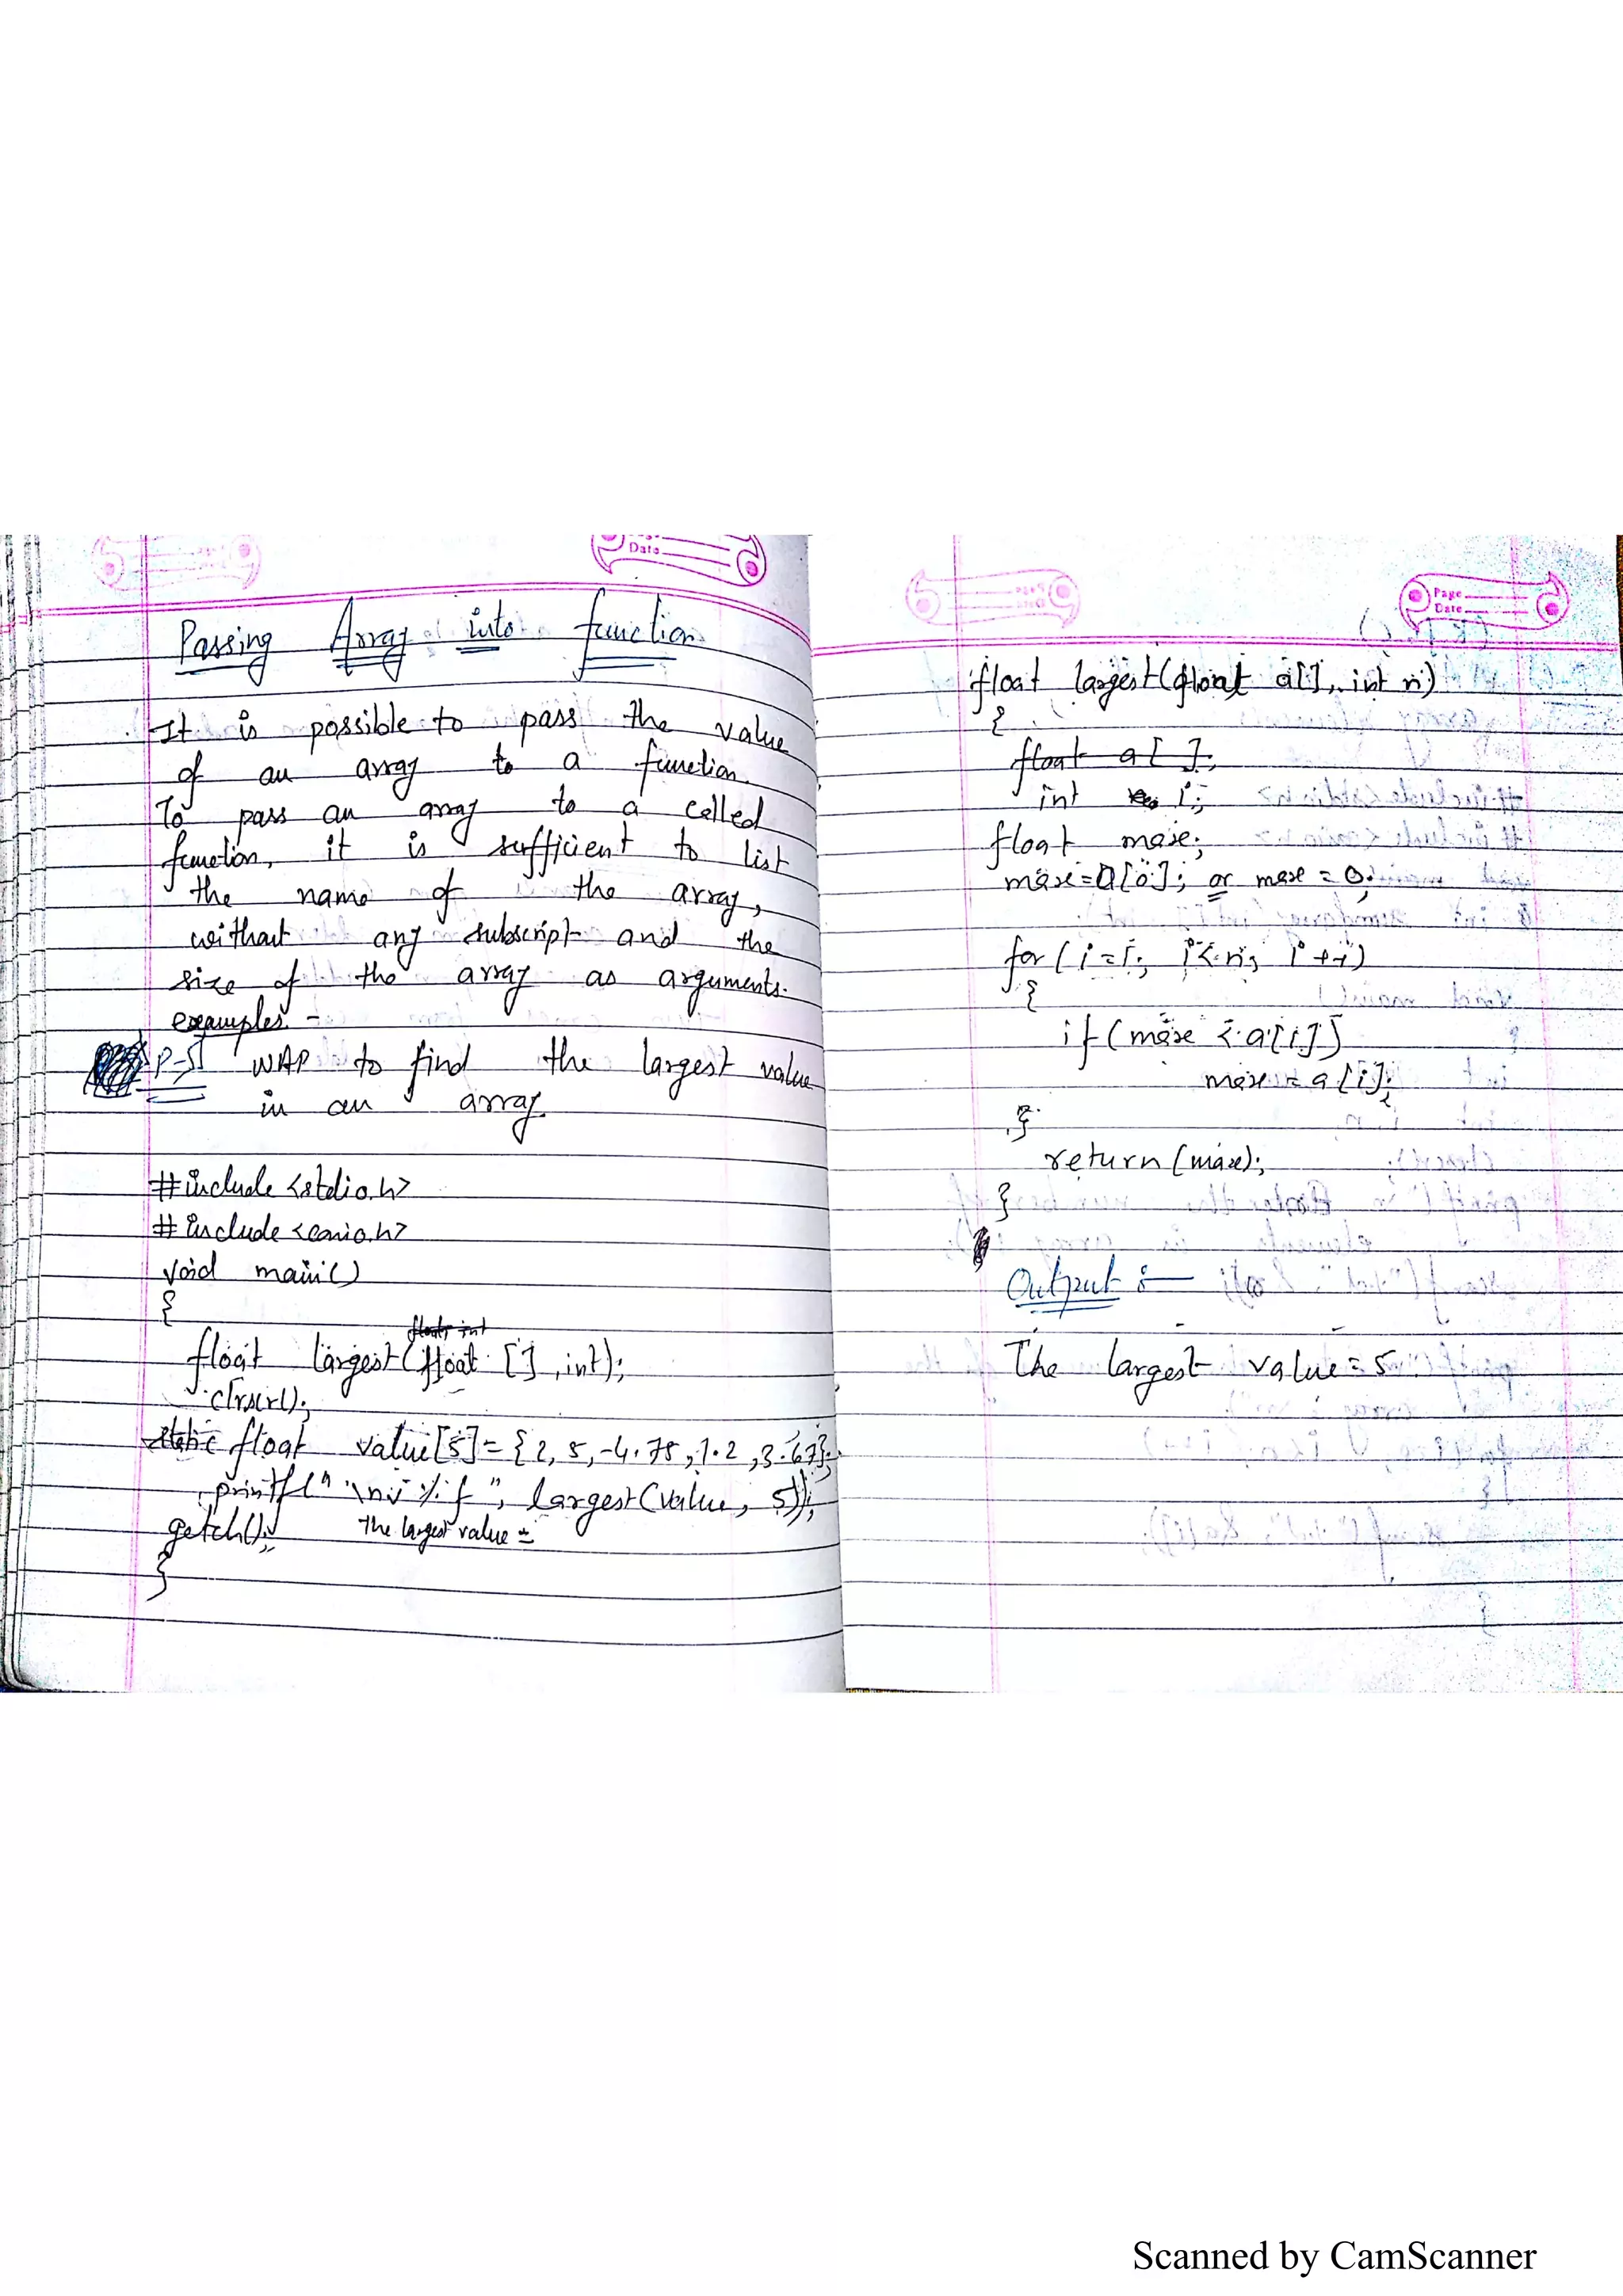 Date
Passing Array into function
It is possible to pass the value
of an array to a function.
To pass an array to a called
function, it is sufficient to list
the name of the array,
without any subscript and the
size of the array as arguments.
examples -
P-5 WAP to find the largest value
in an array
#include <stdio.h>
#include <conio.h>
void main()
{
float int
float largest(float [ ], int);
clrscr();
static float value[5] = {2, 5, -4.75, 1.2, 3.67};
printf("\n %f", largest(value, 5));
getch(); The largest value =
}
Page
Date
float largest(float a[], int n)
{
float a[ ];
int i;
float max;
max = a[0]; or max = 0;
for (i=1; i<n; i++)
{
if (max < a[i])
max = a[i];
}
return (max);
}
Output :-
The largest value = 5.
Scanned by CamScanner